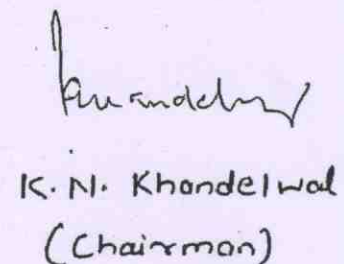 K. N. Khandelwal
(Chairman)